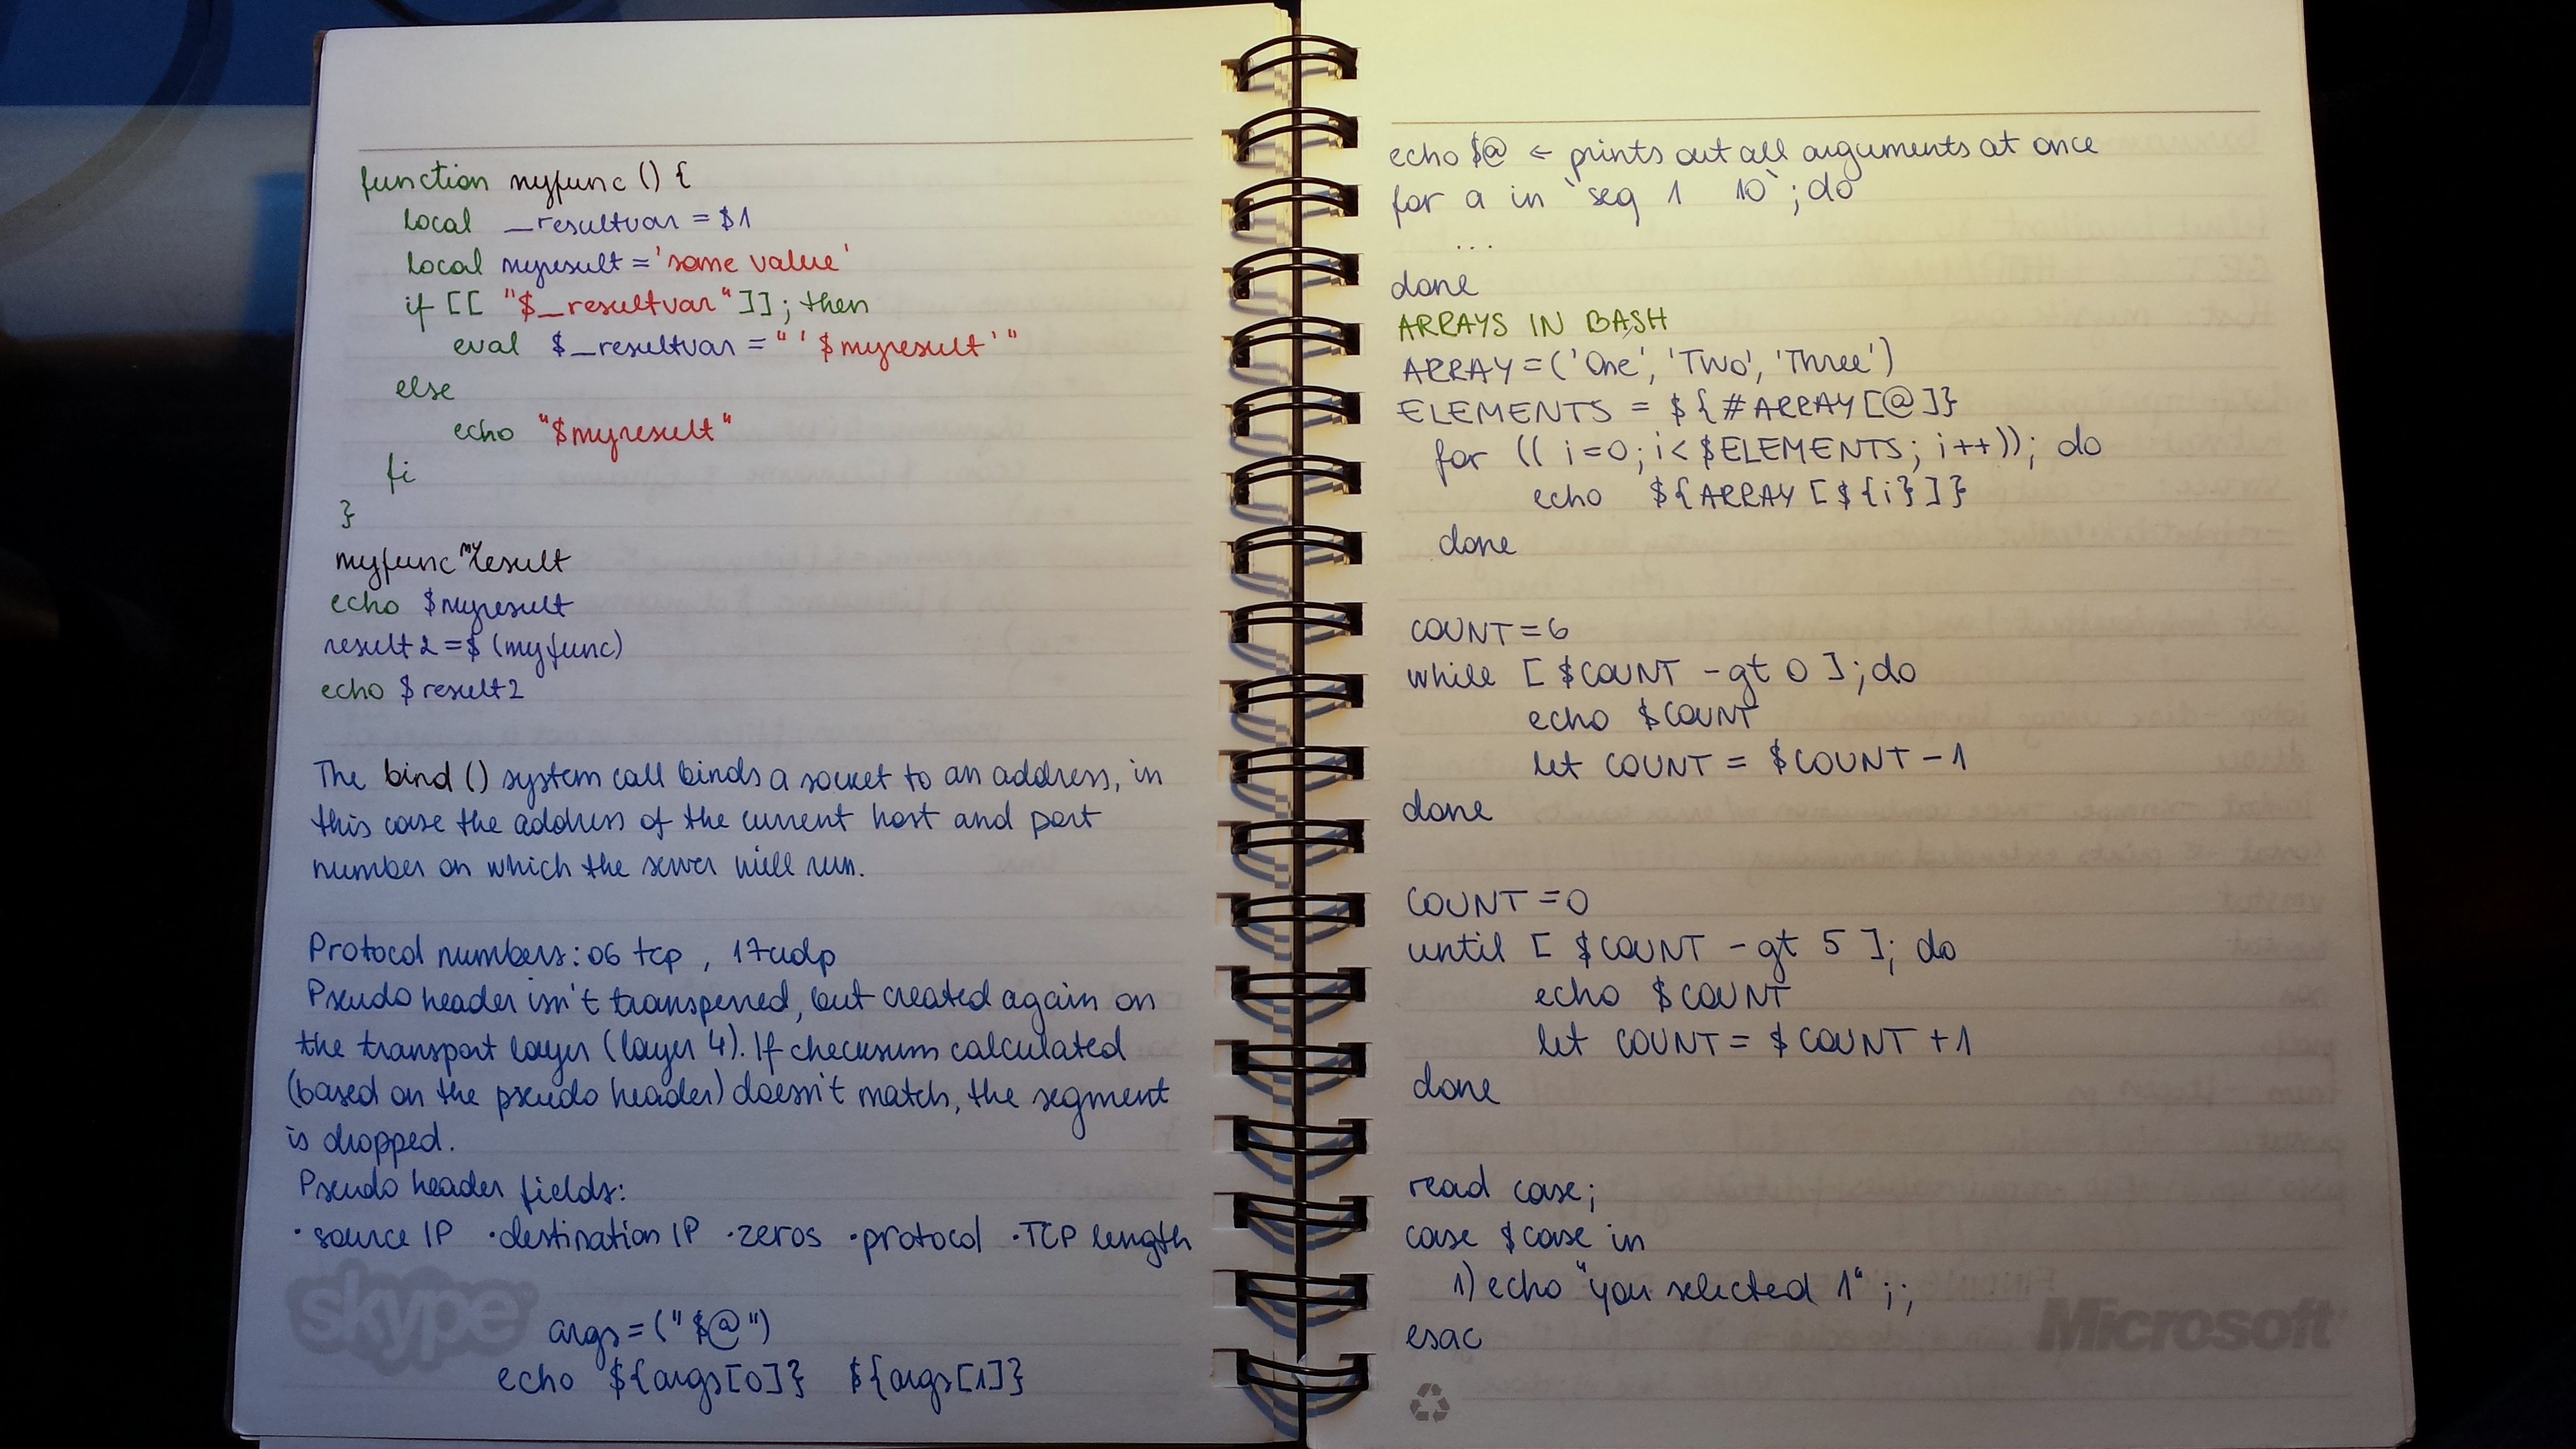 function myfunc () {
local _resultvar = $1
local myresult = 'some value'
if [[ "$_resultvar" ]]; then
eval $_resultvar = "'$myresult'"
else
echo "$myresult"
fi
}
myfunc myresult
echo $myresult
result2 = $ (myfunc)
echo $result2
The bind () system call binds a socket to an address, in
this case the address of the current host and port
number on which the server will run.
Protocol numbers: 06 tcp , 17 udp
Pseudo header isn't transperred, but created again on
the transport layer (layer 4). If checksum calculated
(based on the pseudo header) doesn't match, the segment
is dropped.
Pseudo header fields:
· source IP · destination IP · zeros · protocol · TCP length
skype
args = ("$@")
echo ${args[0]} ${args[1]}
echo $@ ← prints out all arguments at once
for a in `seq 1 10` ; do
...
done
ARRAYS IN BASH
ARRAY = ('One', 'Two', 'Three')
ELEMENTS = ${#ARRAY[@]}
for (( i=0; i<$ELEMENTS; i++)); do
echo ${ARRAY[${i}]}
done
COUNT=6
while [ $COUNT -gt 0 ]; do
echo $COUNT
let COUNT = $COUNT - 1
done
COUNT = 0
until [ $COUNT -gt 5 ]; do
echo $COUNT
let COUNT = $COUNT + 1
done
read case;
case $case in
1) echo "you selected 1" ;;
esac
Microsoft